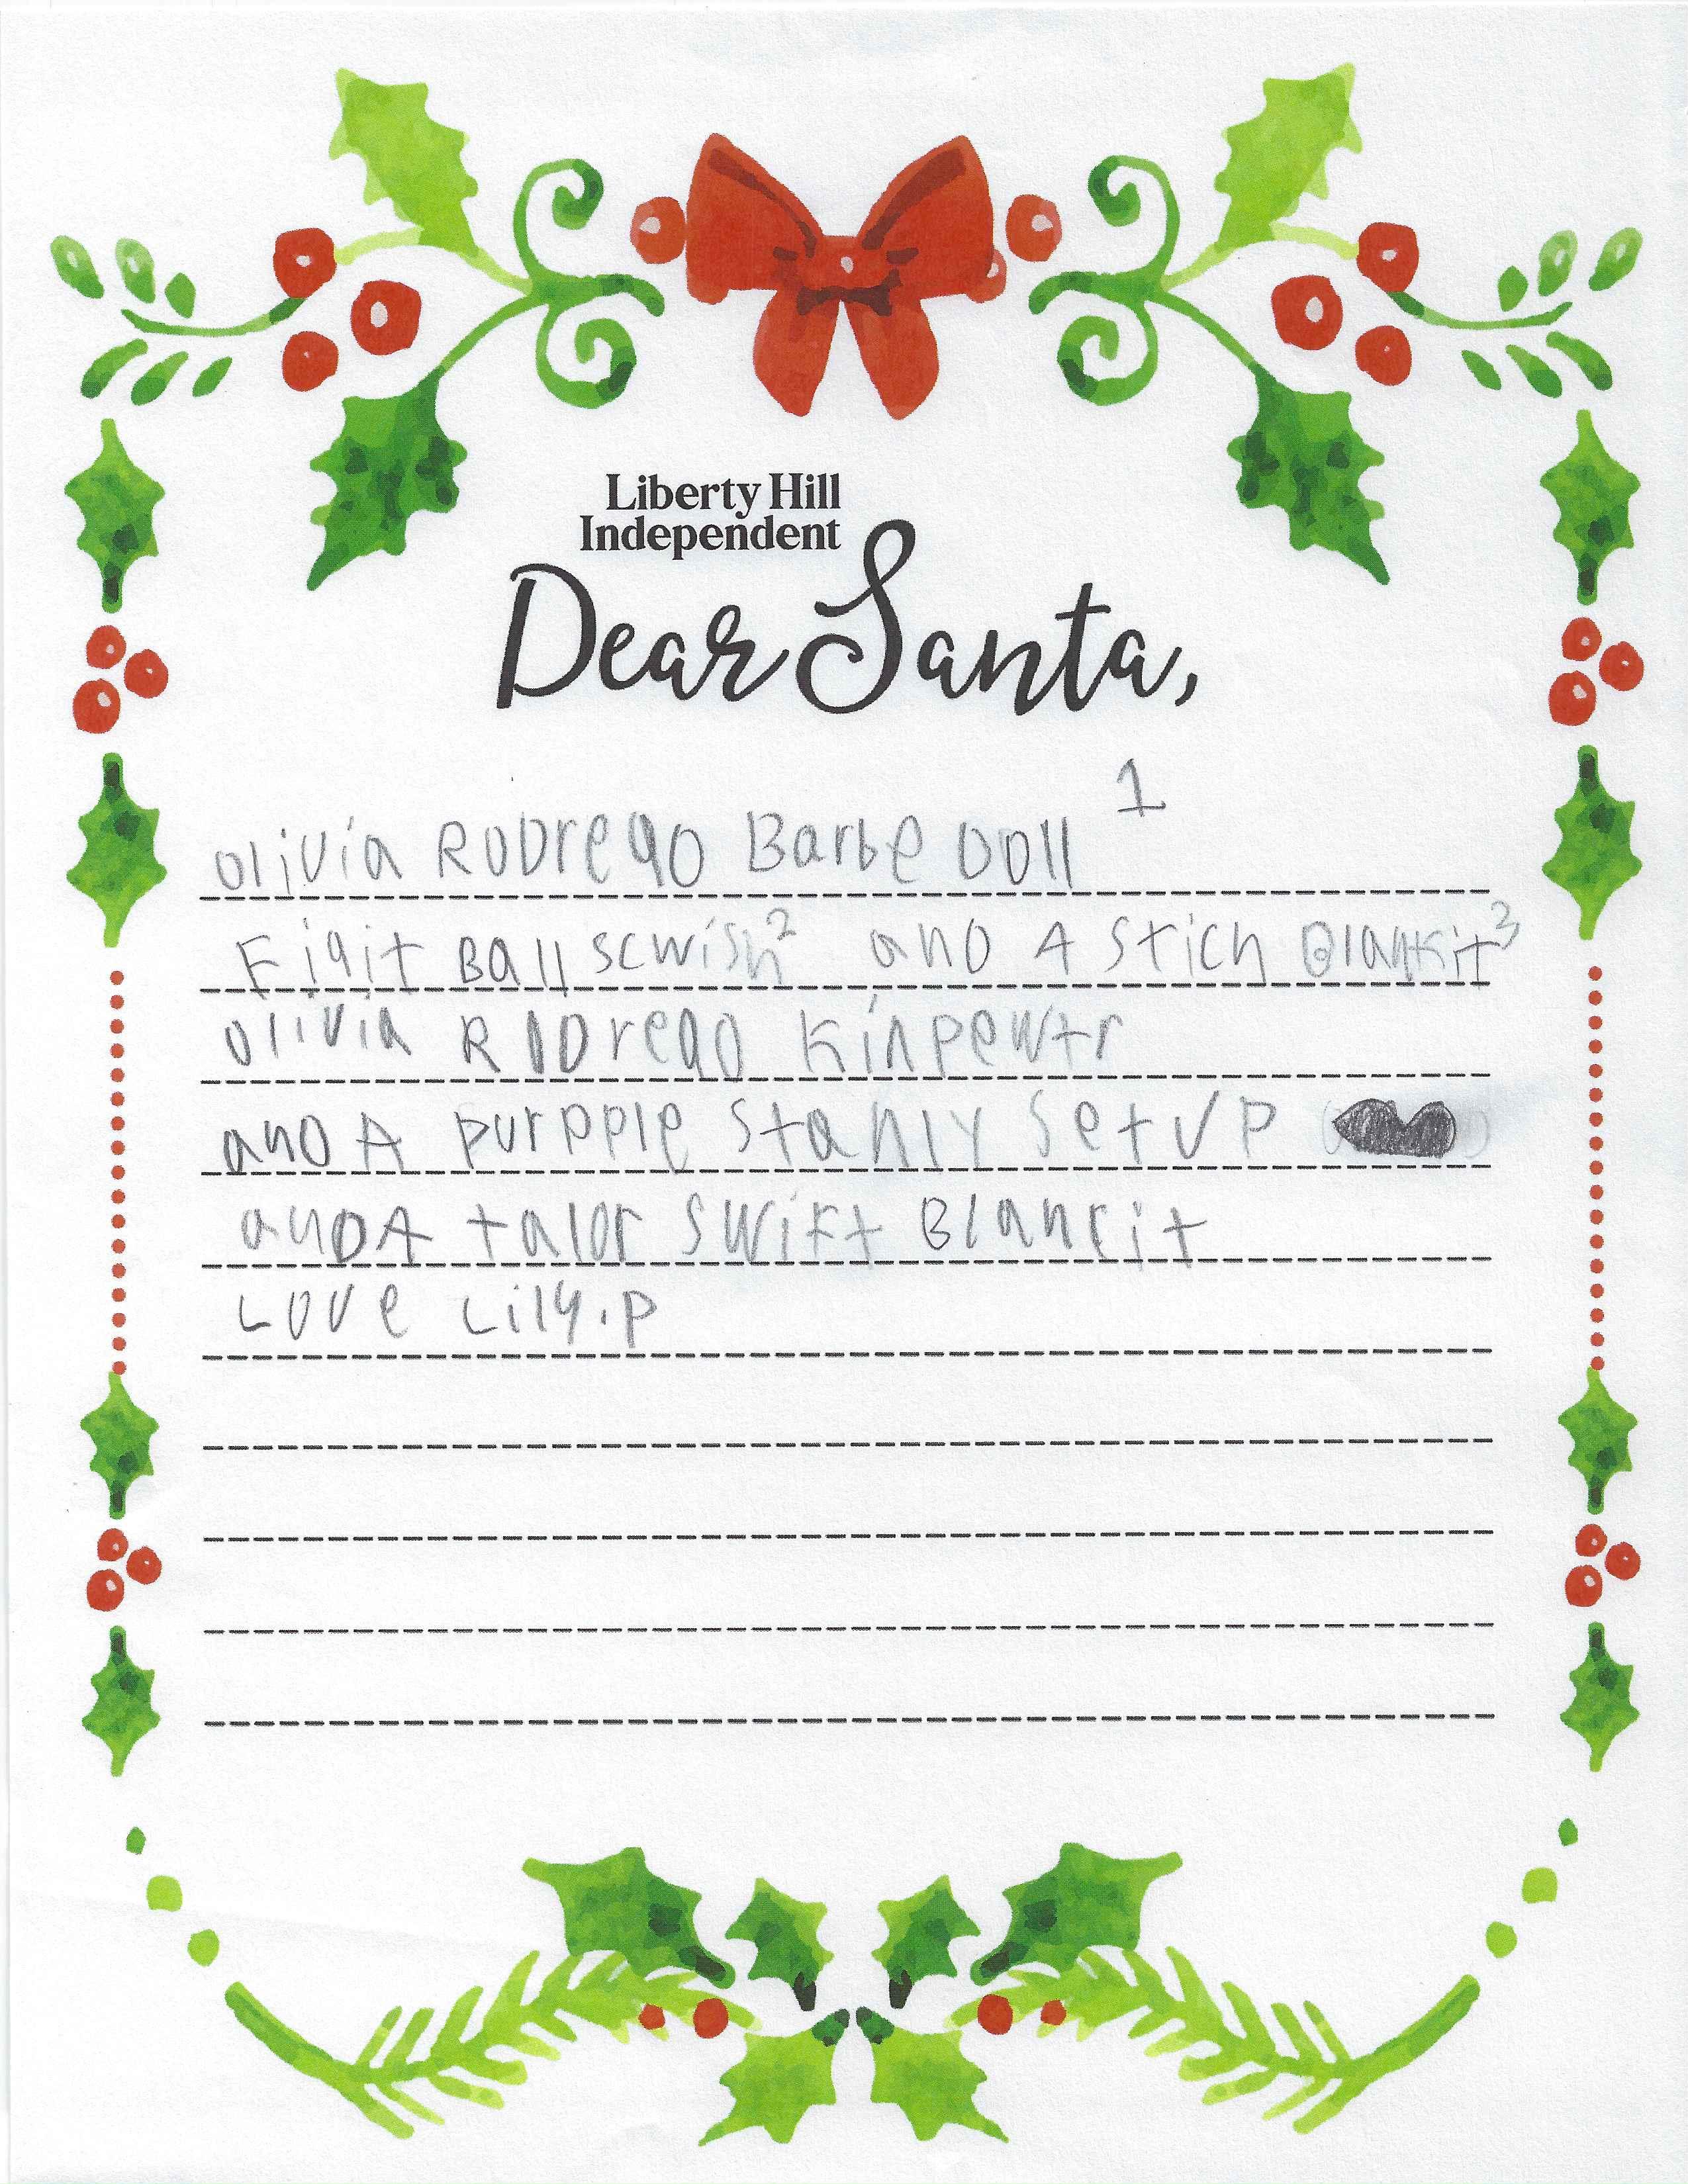 Liberty Hill
Independent
Dear Santa,
1
olivia RoDrego Barbe Doll
Figit Ball scwish² and A stich Blankit³
olivia RoDrego Kinpewtr
and A purpple stanly setup
anD A talor swift Blancit
Love Lily.p